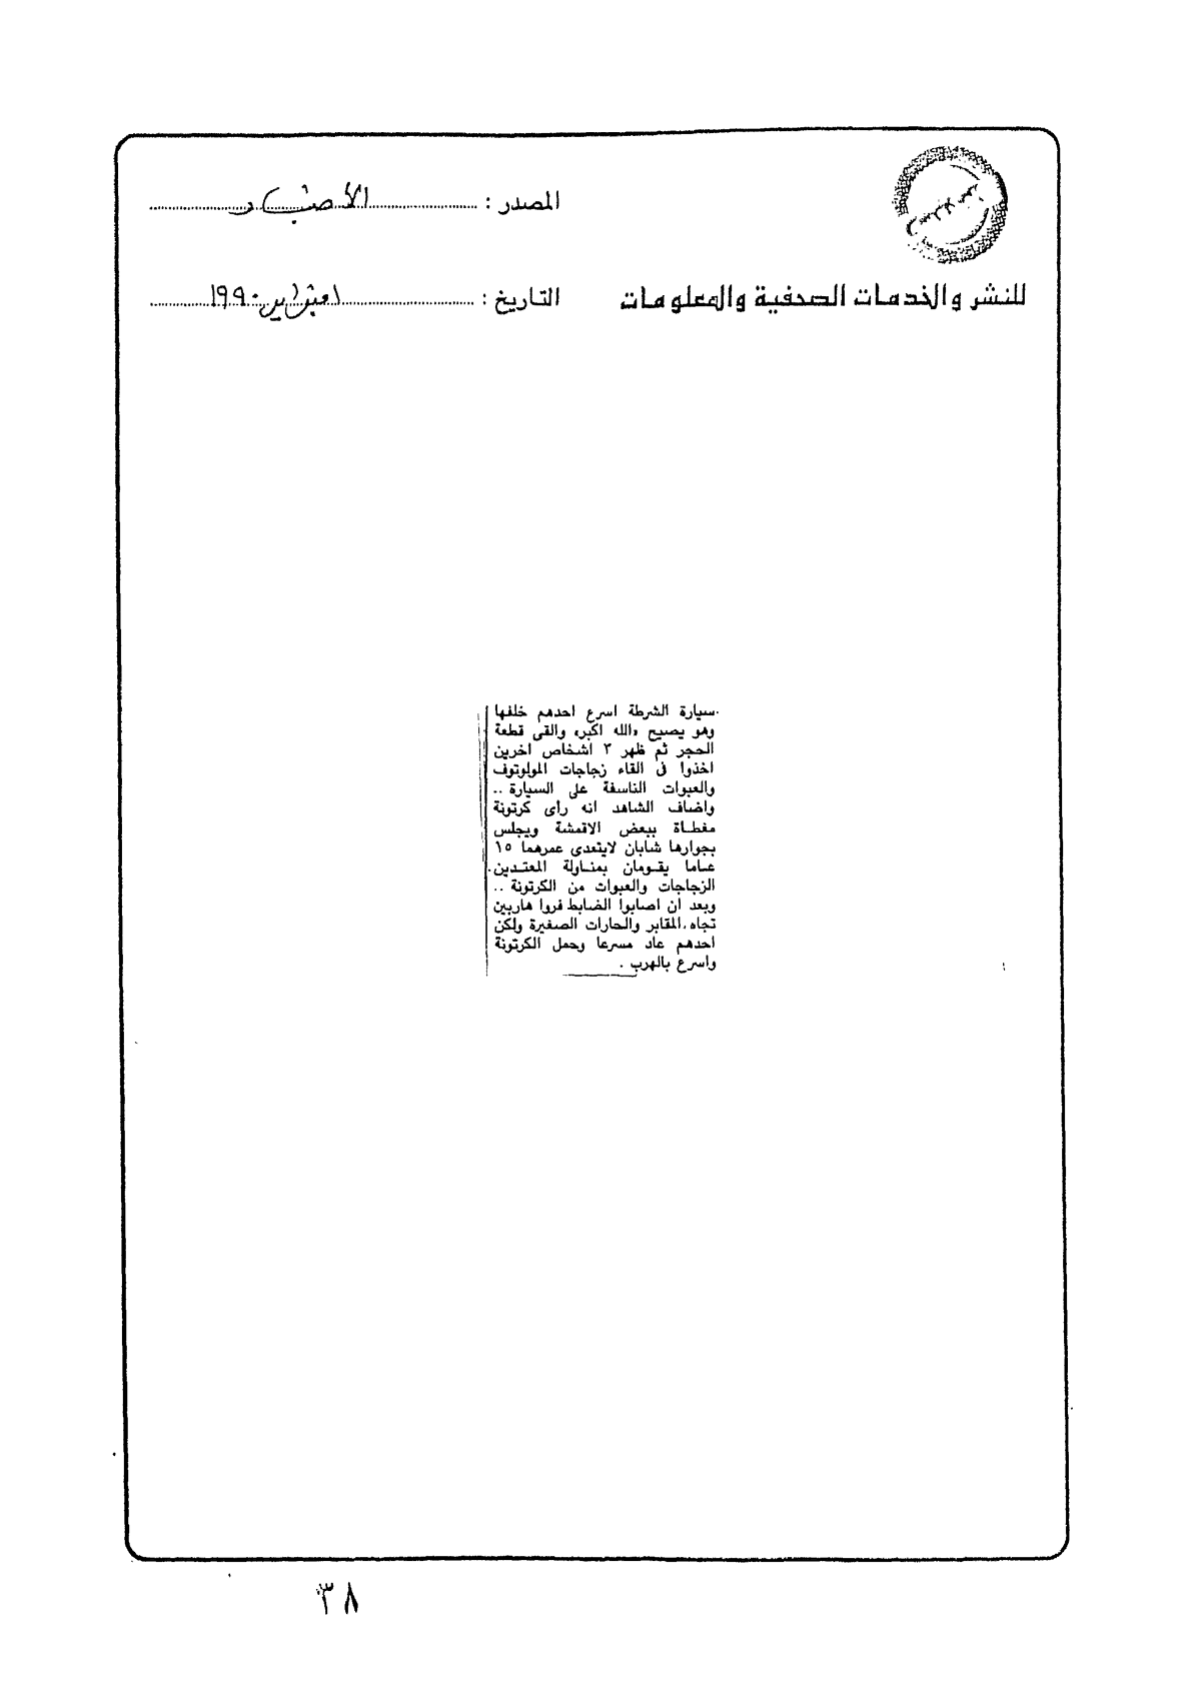 المصدر : الأخبار
للنشر والخدمات الصحفية والمعلومات
التاريخ : ١ فبراير ١٩٩٠
سيارة الشرطة اسرع احدهم خلفها
وهو يصيح «الله اكبر» والقى قطعة
الحجر ثم ظهر ٣ اشخاص اخرين
اخذوا فى القاء زجاجات المولوتوف
والعبوات الناسفة على السيارة ..
واضاف الشاهد انه رأى كرتونة
مغطاة ببعض الاقمشة ويجلس
بجوارها شابان لايتعدى عمرهما ١٥
عاما يقومان بمناولة المعتدين
الزجاجات والعبوات من الكرتونة ..
وبعد ان اصابوا الضابط فروا هاربين
تجاه المقابر والحارات الصغيرة ولكن
احدهم عاد مسرعا وحمل الكرتونة
واسرع بالهرب .
٣٨